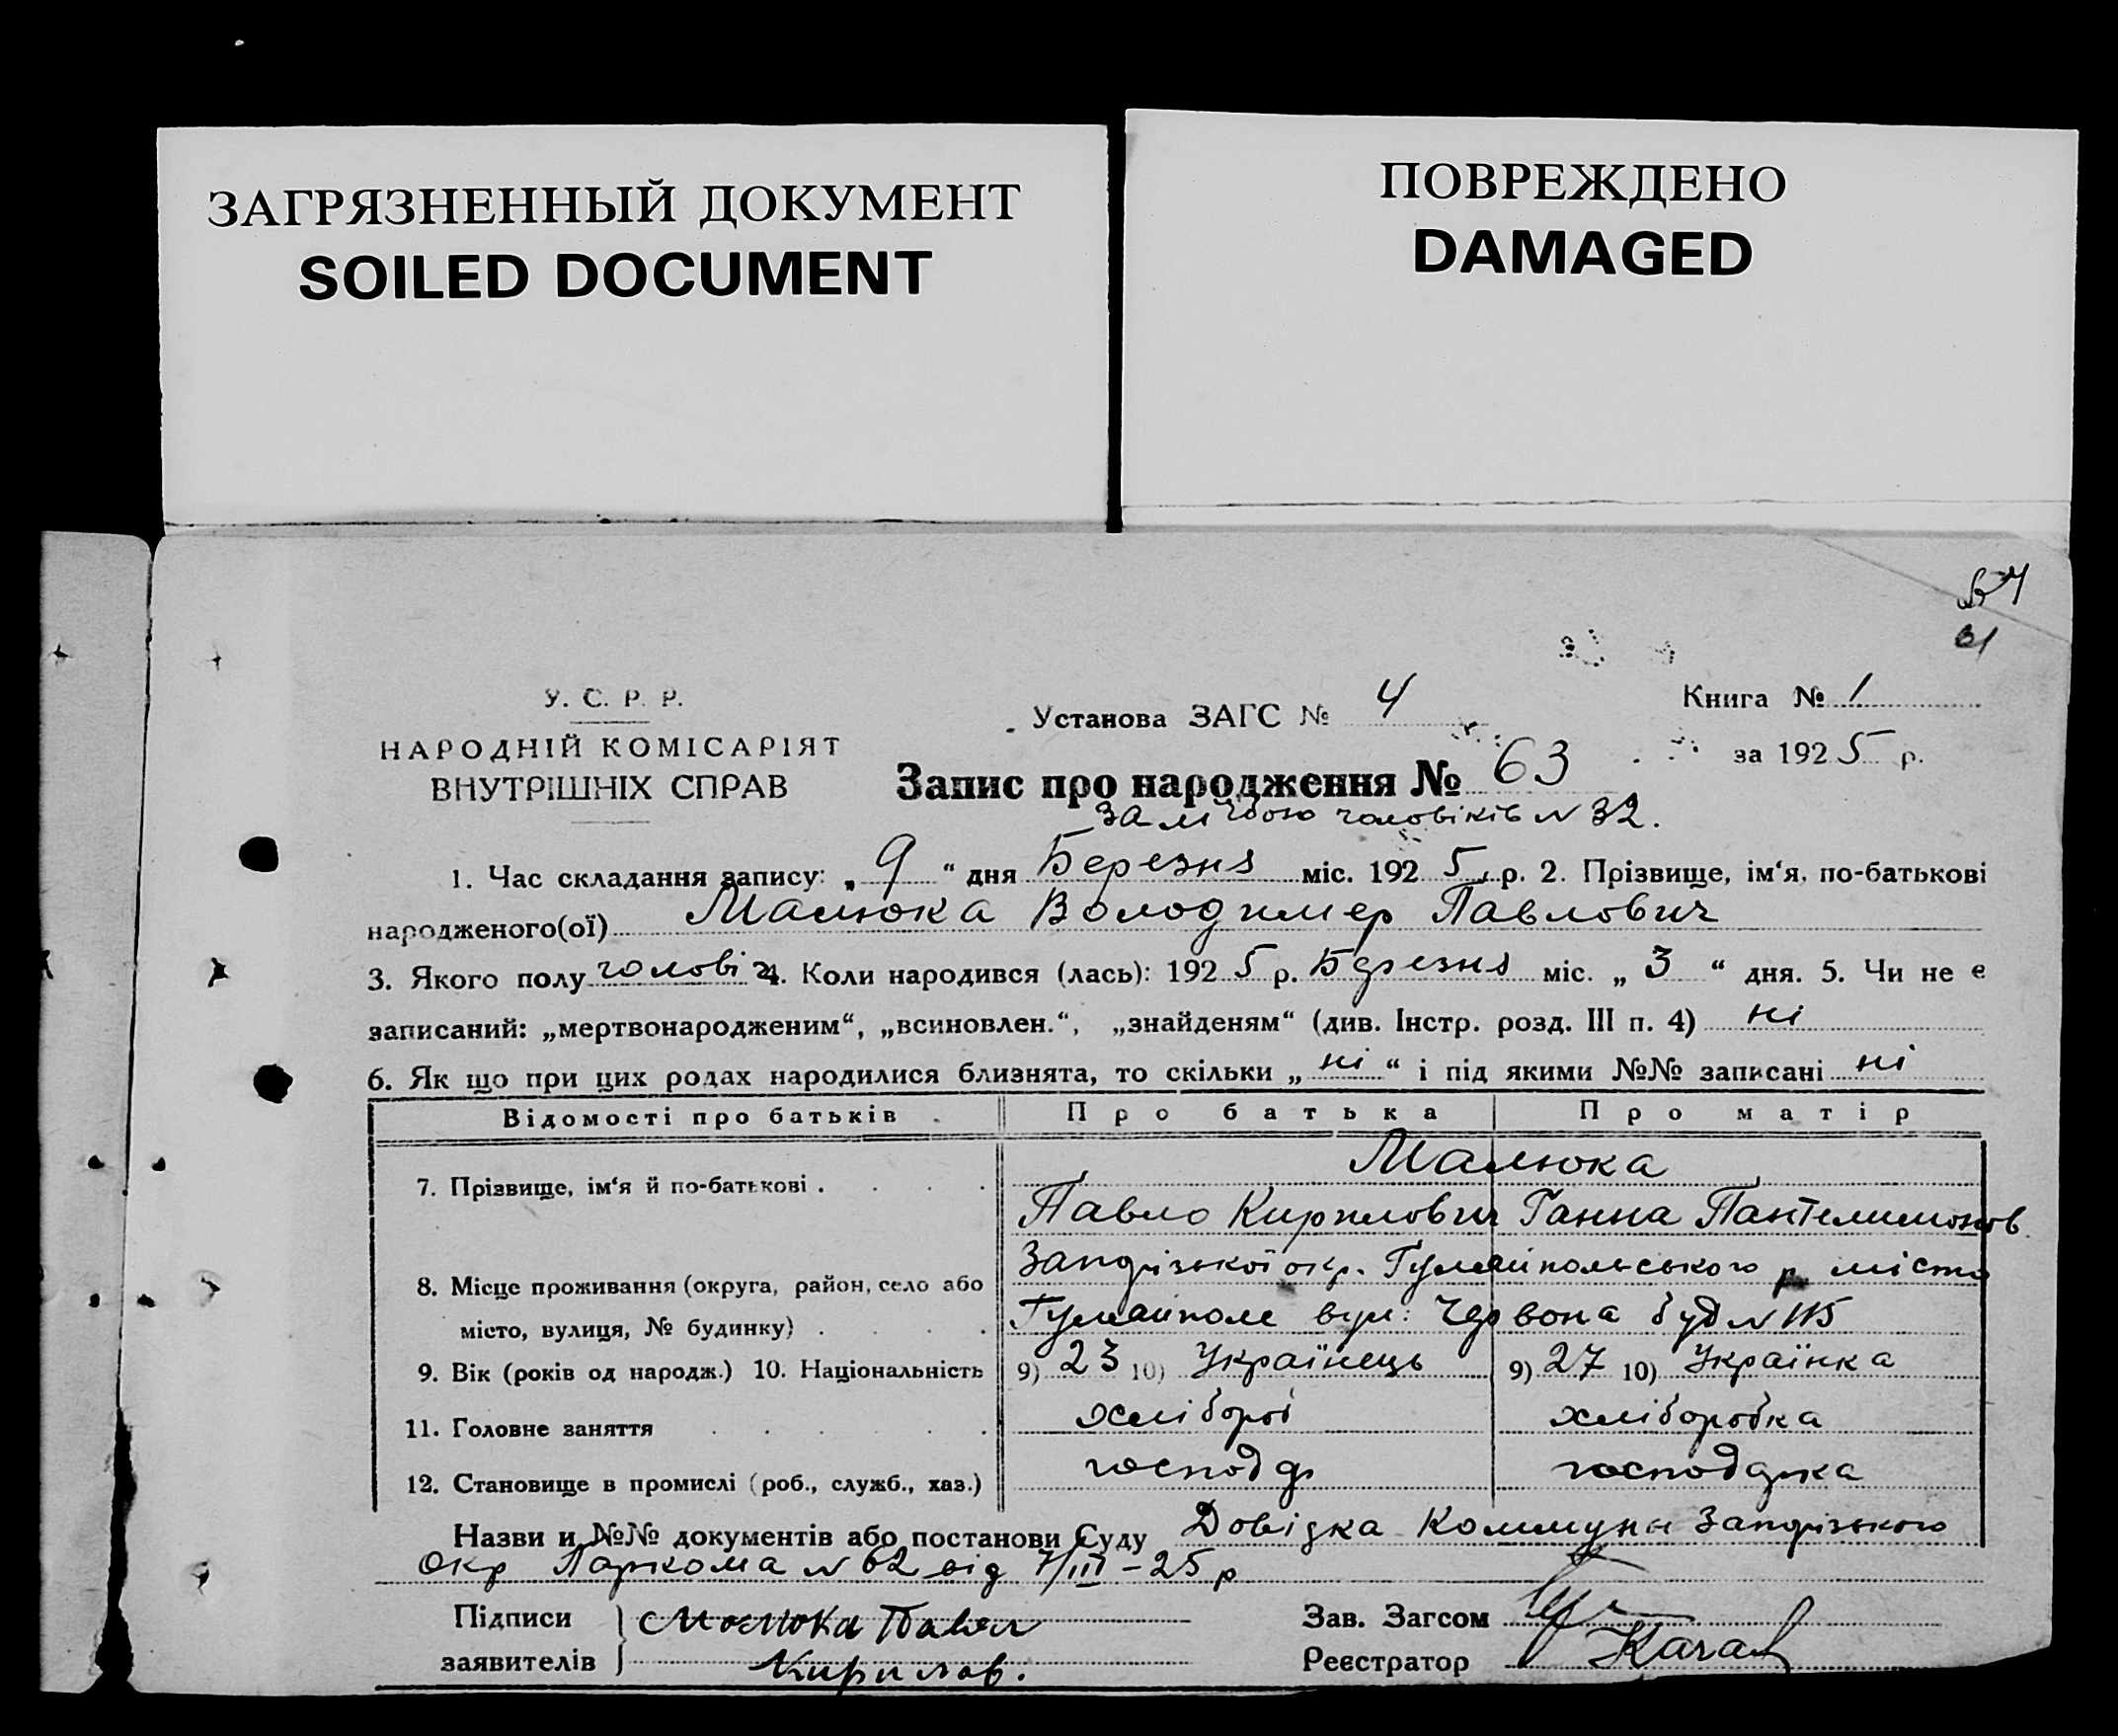 ЗАГРЯЗНЕННЫЙ ДОКУМЕНТ
SOILED DOCUMENT
ПОВРЕЖДЕНО
DAMAGED
У. С. Р. Р.
НАРОДНІЙ КОМІСАРІЯТ
ВНУТРІШНІХ СПРАВ
Установа ЗАГС № 4
Книга № 1
за 1925 р.
Запис про народження № 63
за лічбою чоловіків № 32.
1. Час складання запису: „ 9 “ дня Березня міс. 1925 р. 2. Прізвище, ім‘я, по-батькові
народженого(ої) Малюка Володимер Павлович
3. Якого полу чоловіч 4. Коли народився (лась): 1925 р. Березня міс. „ 3 “ дня. 5. Чи не є
записаний: „мертвонародженим“, „всиновлен.“, „знайденям“ (див. Інстр. розд. III п. 4) ні
6. Як що при цих родах народилися близнята, то скільки „ ні “ і під якими №№ записані ні
Відомості про батьків
Про батька
Про матір
Малюка
7. Прізвище, ім‘я й по-батькові
Павло Кирилович Ганна Пантелимонов.
8. Місце проживання (округа, район, село або Запорізької окр. Гуляйпольського р. місто
місто, вулиця, № будинку) Гуляйполе вул: Червона буд № 115
9. Вік (років од народж.) 10. Національність 9) 23 10) Українець 9) 27 10) Українка
11. Головне заняття хлібороб хліборобка
12. Становище в промислі (роб., служб., хаз.) господар господарка
Назви и №№ документів або постанови Суду Довідка Коммуны Запорізького
Окр Паркома № 62 від 7/III-25 р
Підписи Малюка Павел Зав. Загсом
заявителів Кирилов. Реєстратор